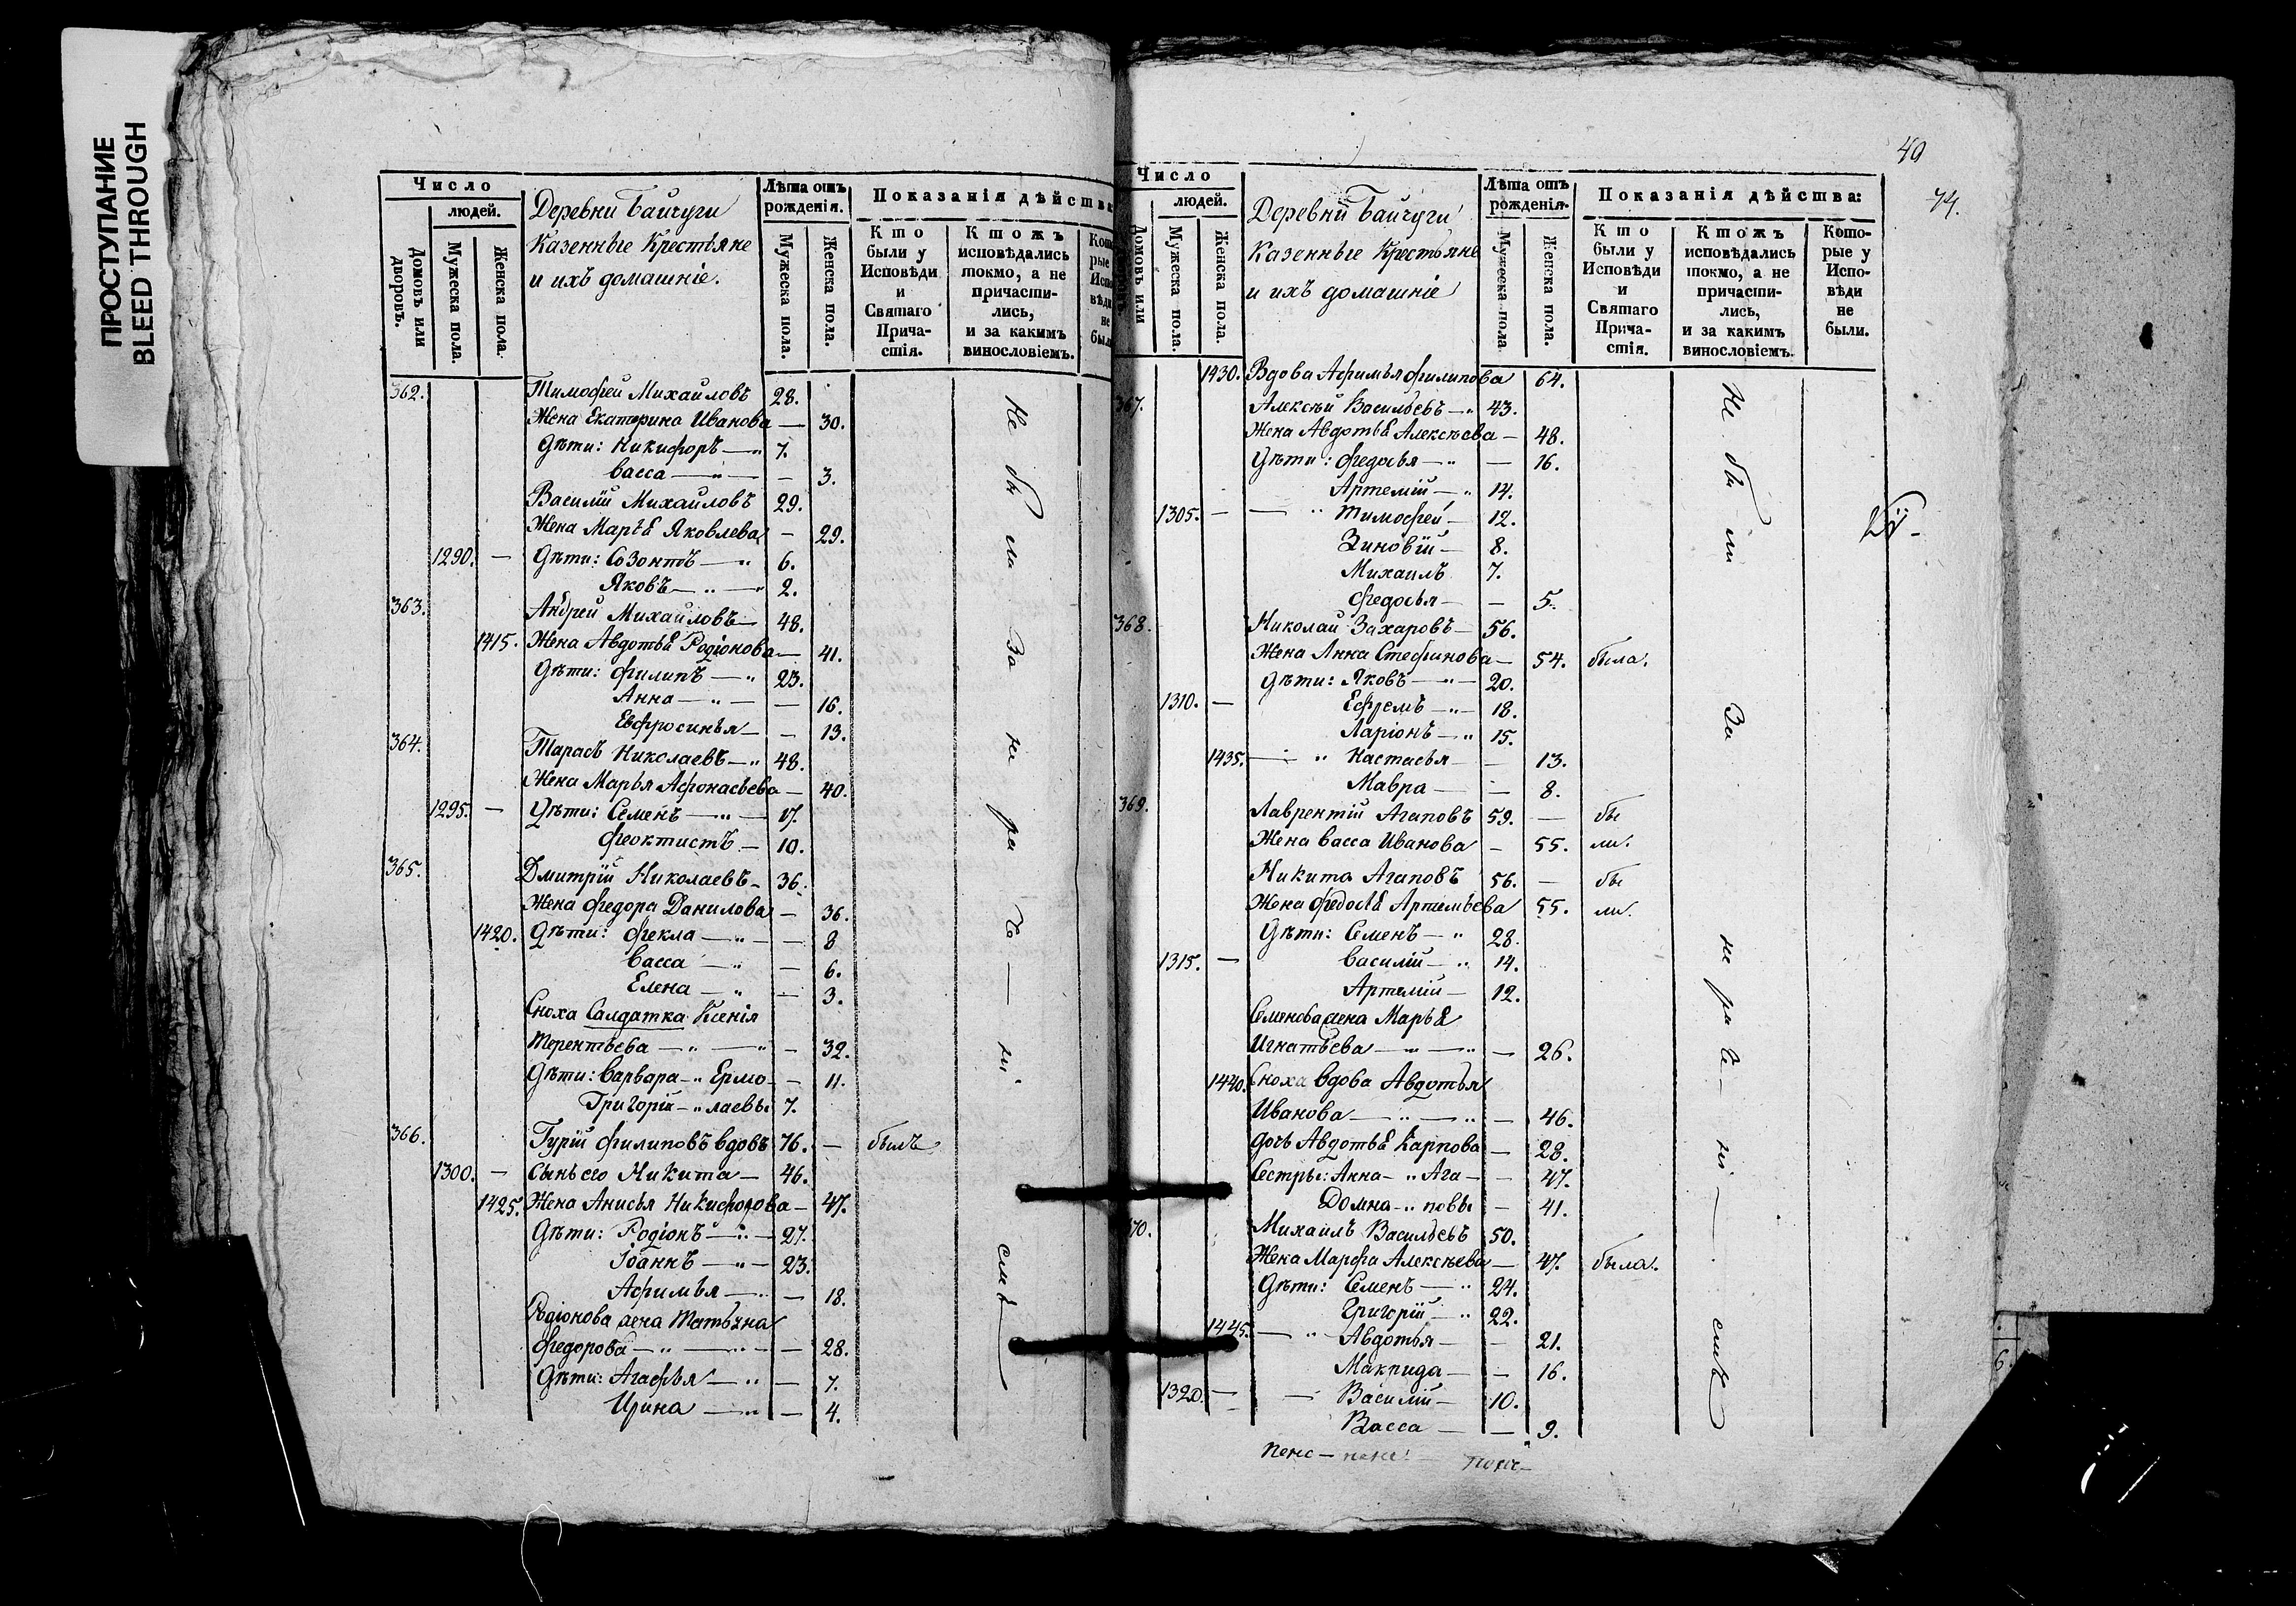 ПРОСТУПАНИЕ
BLEED THROUGH
Число
людей.
Домовъ или дворовъ.
Мужеска пола.
Женска пола.
Деревни Байчуги
Казенные Крестьяне
и ихъ домашніе.
Лѣта отъ рожденія.
Мужеска пола.
Женска пола.
Показанія дѣйства
Кто были у Исповѣди и Святаго Прича-стія.
Ктожъ исповѣдались токмо, а не причасти-лись, и за какимъ винословіемъ.
362. Тимофей Михайловъ 28.
Жена Екатерина Иванова — 30.
Дѣти: Никифоръ — 7.
Васса — — 3.
Василій Михайловъ 29.
Жена Марья Яковлева — 29.
1290. — Дѣти: Созонтъ — 6.
Яковъ — 2.
363. Андрей Михайловъ — 48.
1415. Жена Авдотья Родіонова — 41.
Дѣти: Филипъ — 23.
Анна — — 16.
Евфросинья — — 13.
364. Тарасъ Николаевъ — 48.
Жена Марья Афонасьева — 40.
1295. — Дѣти: Семенъ — 17.
Феоктистъ — 10.
365. Дмитрій Николаевъ — 36.
Жена Федора Данилова — 36.
1420. Дѣти: Фекла — — 8
Васса — — 6.
Елена — — 3.
Сноха Салдатка Ксенія
Терентьева — — 32.
Дѣти: Варвара — Ермо- — 11.
Григорій — лаевы 7.
366. Гурій Филиповъ вдовъ 76. — былъ
1300. — Сынъ его Никита — 46.
1425. Жена Анисья Никифорова — 47.
Дѣти: Родіонъ — 27.
Іоаннъ — 23.
Афимья — — 18.
Родіонова жена Татьяна
Федорова — — 28.
Дѣти: Агафья — — 7.
Ирина — — 4.
Не бы ли За не ра че — ні емъ
49
74.
Число
людей.
Домовъ или
Мужеска пола.
Женска пола.
Деревни Байчуги
Казенные Крестьяне
и ихъ домашніе
Лѣта отъ рожденія.
Мужеска пола
Женска пола.
Показанія дѣйства:
Кто были у Исповѣди и Святаго Прича-стія.
Ктожъ исповѣдались токмо, а не причасти-лись, и за какимъ винословіемъ.
Кото-рые у Испо-вѣди не были.
1430. Вдова Афимья Филипова 64.
367. Алексѣй Васильевъ — 43.
Жена Авдотья Алексѣева — 48.
Дѣти: Федосья — — 16.
Артемій — 14.
1305. — — Тимофей — 12.
Зиновій — 8.
Михаилъ 7.
Федосья — — 5.
368. Николай Захаровъ — 56.
Жена Анна Стефанова — 54. была.
Дѣти: Яковъ — 20.
1310. — Ефремъ — 18.
Ларіонъ — 15.
1435. — Настасья — — 13.
Мавра — — 8.
369. Лаврентій Агаповъ 59. — бы
Жена Васса Иванова — 55. ли.
Никита Агаповъ 56. — бы
Жена Федосья Артемьева 55. ли.
Дѣти: Семенъ — 28.
1315. — Василій — 14.
Артемій — 12.
Семенова жена Марья
Игнатьева — — 26.
1440. Сноха вдова Авдотья
Иванова — — 46.
Дочь Авдотья Карпова — 28.
Сестры: Анна — Ага- — 47.
Домна — повы — 41.
370. Михаилъ Васильевъ 50.
Жена Марфа Алексѣева — 47. была.
Дѣти: Семенъ — 24.
Григорій 22.
1445. — Авдотья — — 21.
Макрида — — 16.
1320. — — Василій — 10.
Васса — — 9.
Не бы ли За не ра че — ні — емъ